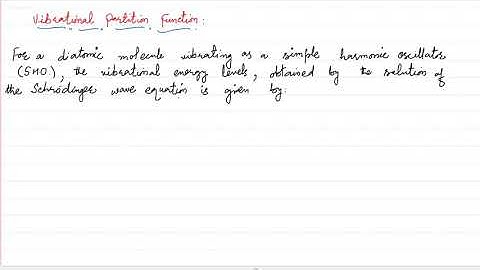 Vibrational Partition Function:
For a diatomic molecule vibrating as a simple harmonic oscillator
(SHO), the vibrational energy levels, obtained by the solution of
the Schrödinger wave equation is given by: